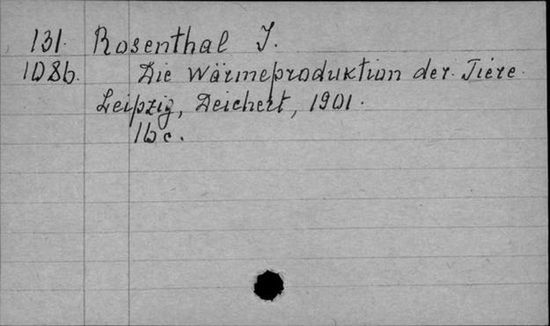 131. Rosenthal J.
1086. Die Wärmeproduktion der Tiere.
Leipzig, Deichert, 1901.
16 c.